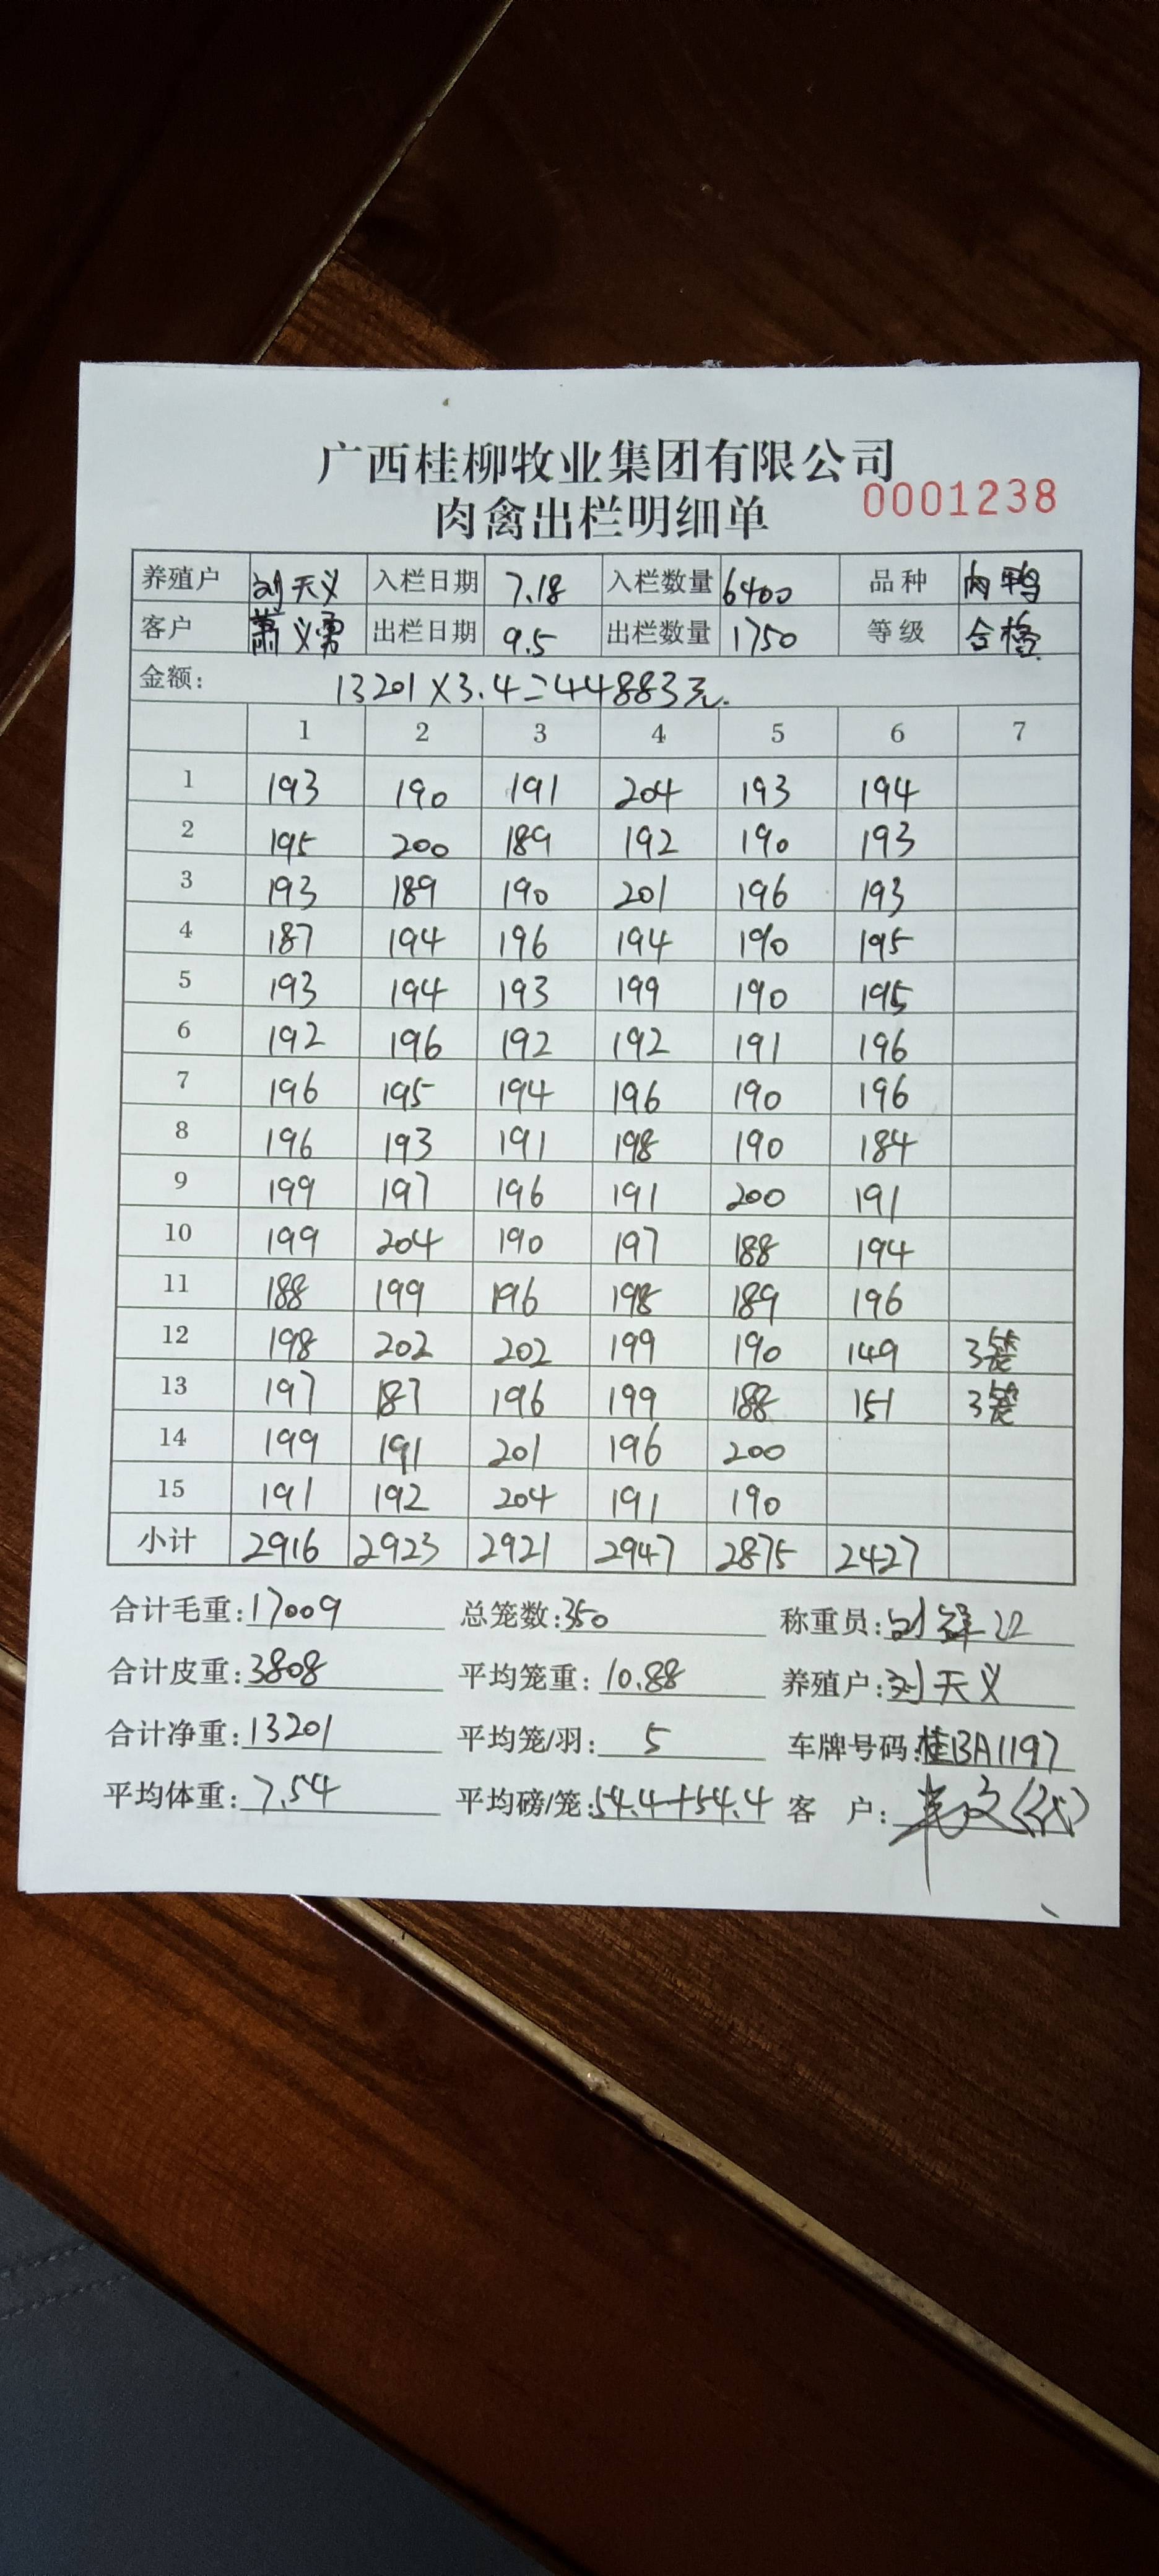 广西桂柳牧业集团有限公司
肉禽出栏明细单 0001238
养殖户 刘天义 入栏日期 7.18 入栏数量 6400 品种 肉鸭
客户 萧义勇 出栏日期 9.5 出栏数量 1750 等级 合格
金额: 13201×3.4=44883元.
1 2 3 4 5 6 7
1 193 190 191 204 193 194
2 195 200 189 192 190 193
3 193 189 190 201 196 193
4 187 194 196 194 190 195
5 193 194 193 199 190 195
6 192 196 192 192 191 196
7 196 195 194 196 190 196
8 196 193 191 198 190 184
9 199 197 196 191 200 191
10 199 204 190 197 188 194
11 188 199 196 198 189 196
12 198 202 202 199 190 149 3笼
13 197 187 196 199 188 151 3笼
14 199 191 201 196 200
15 191 192 204 191 190
小计 2916 2923 2921 2947 2875 2427
合计毛重:17009 总笼数:350 称重员:刘
合计皮重:3808 平均笼重:10.88 养殖户:刘天义
合计净重:13201 平均笼/羽: 5 车牌号码:桂BA1197
平均体重:7.54 平均磅/笼:54.4+54.4 客 户: